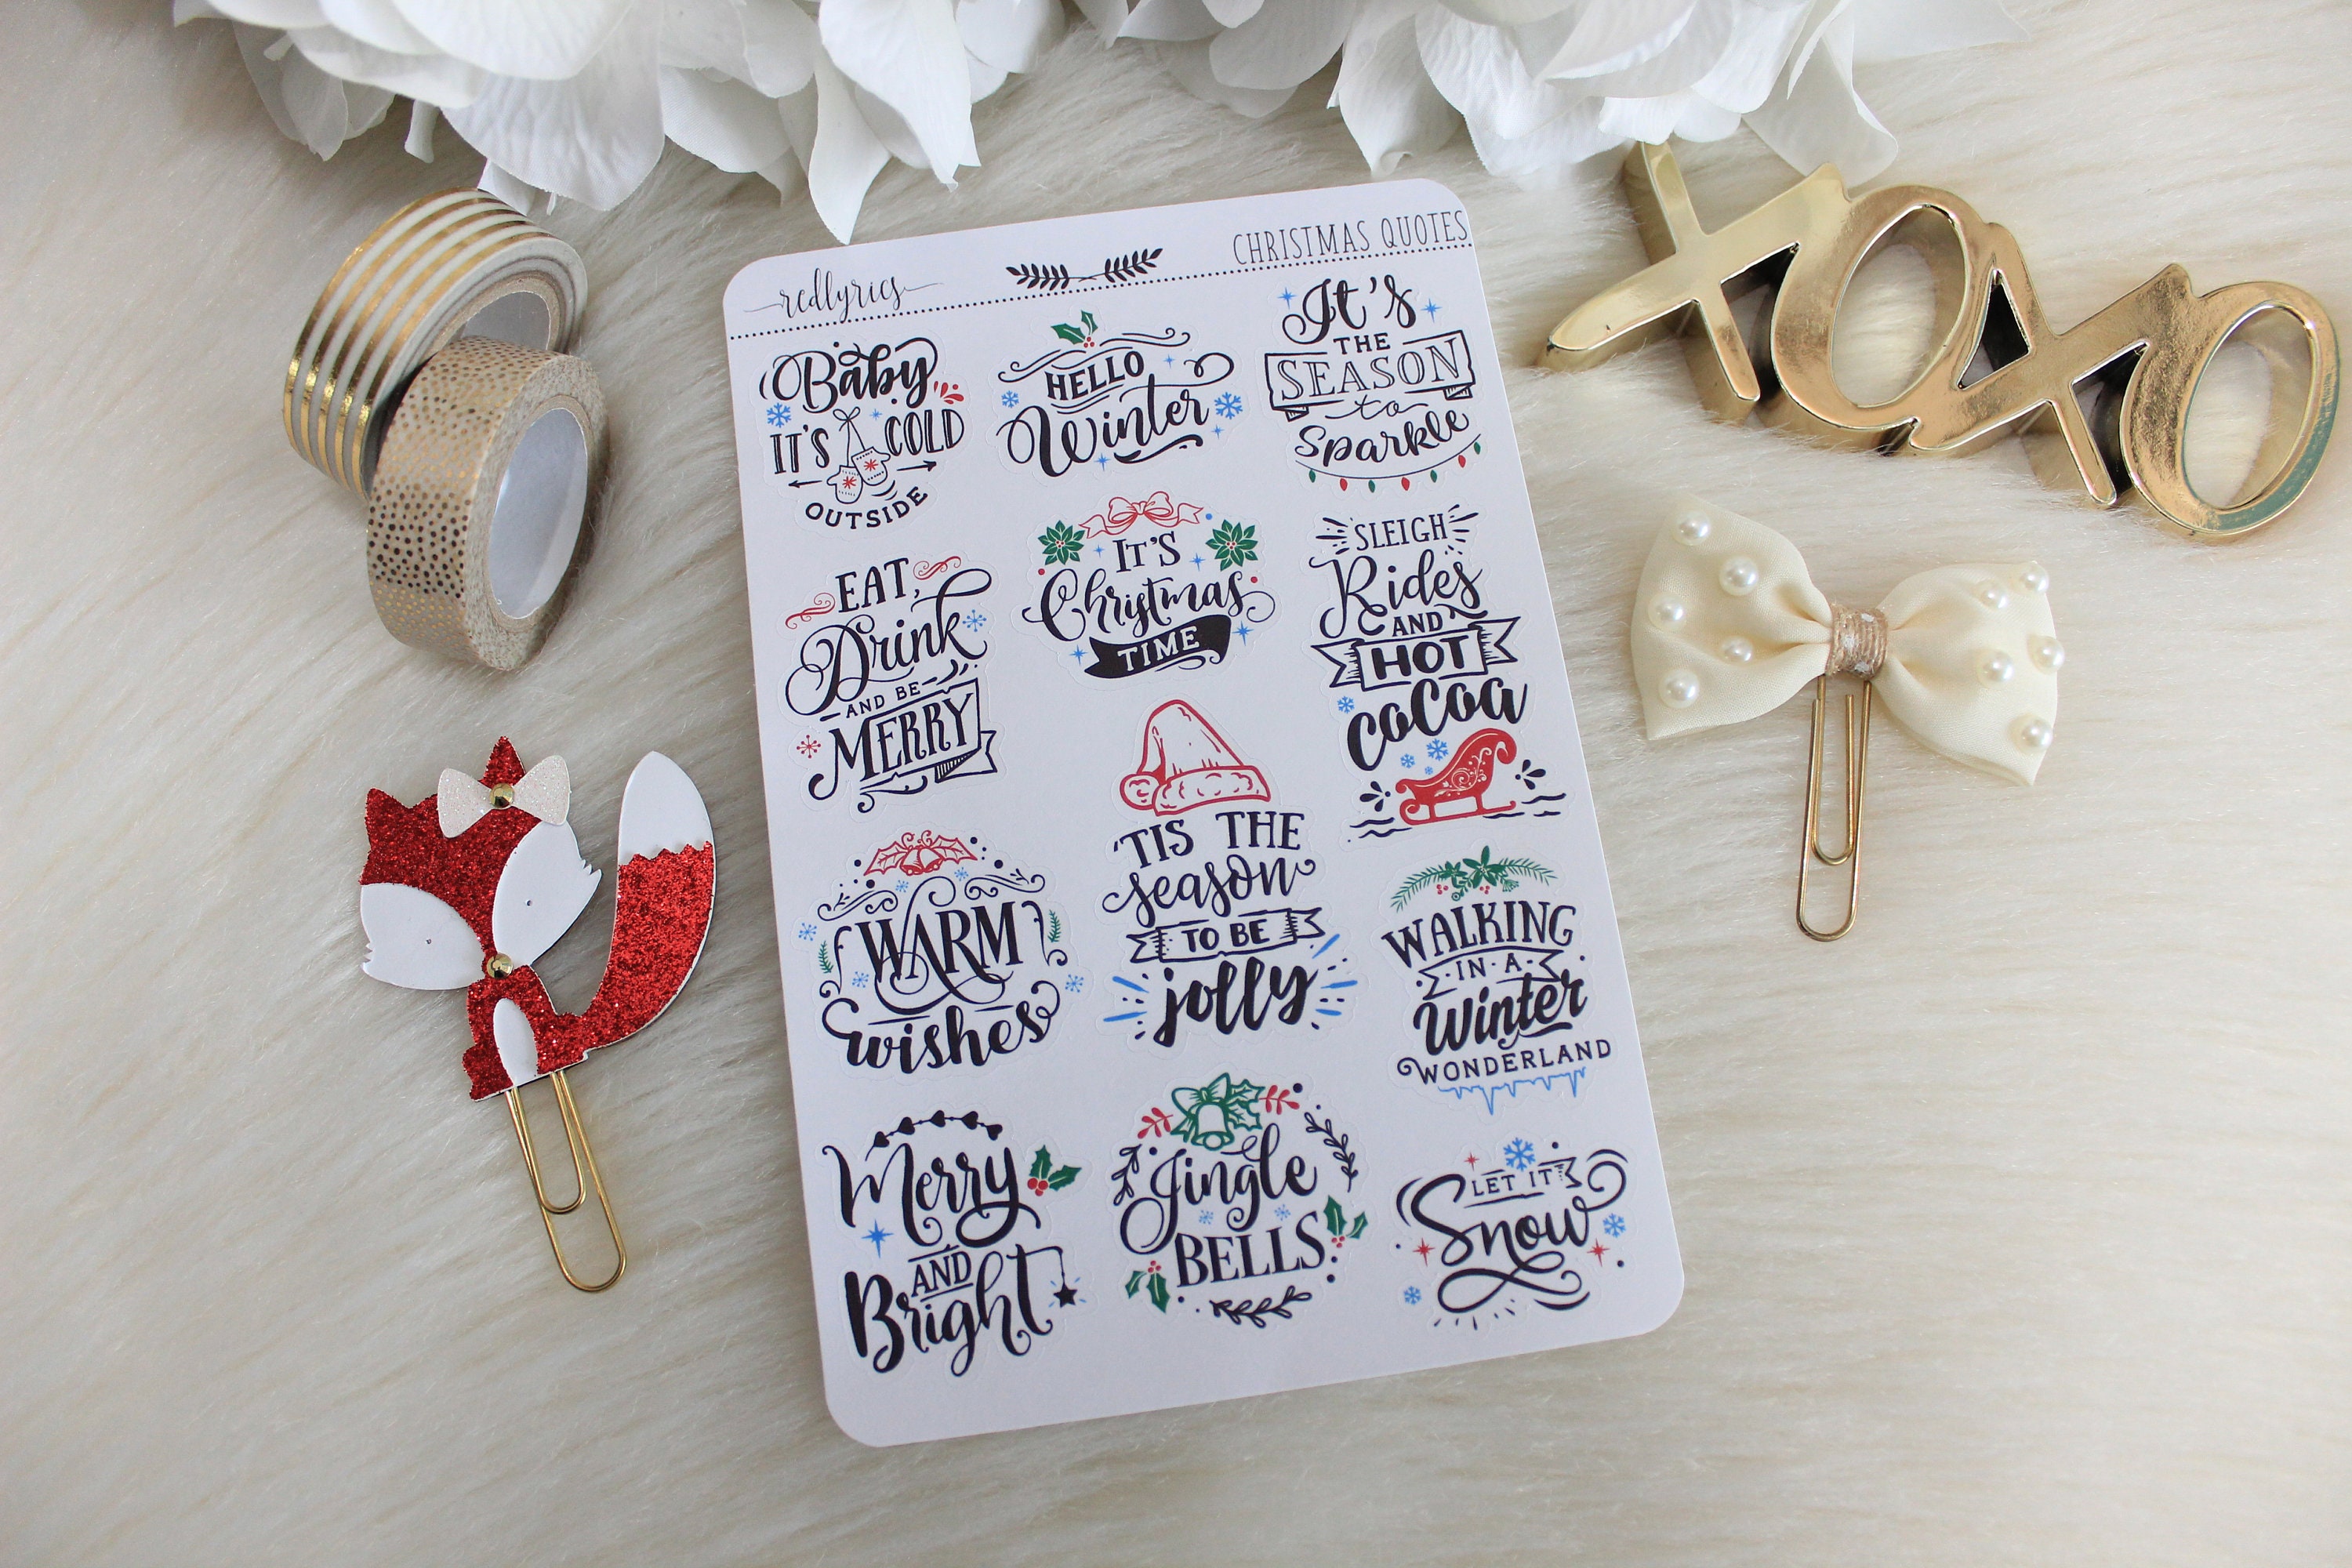 redlyrics
CHRISTMAS QUOTES
Baby
IT'S COLD
OUTSIDE
HELLO
Winter
It's
THE
SEASON
to
Sparkle
EAT,
Drink
AND BE
MERRY
IT'S
Christmas
TIME
SLEIGH
Rides
AND
HOT
cocoa
WARM
wishes
'TIS THE
season
TO BE
jolly
WALKING
IN A
Winter
WONDERLAND
Merry
AND
Bright
Jingle
BELLS
LET IT
Snow
XOXO